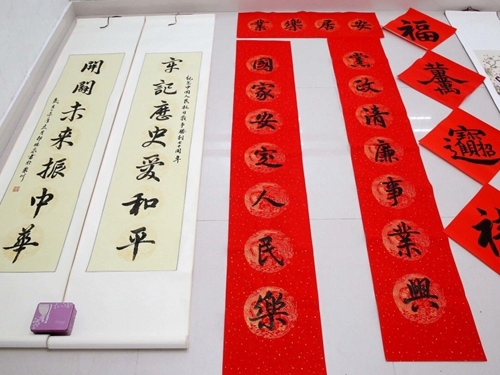 安居樂業
黨政清廉事業興
國家安定人民樂
福
牢記歷史愛和平
開闢未来振中華